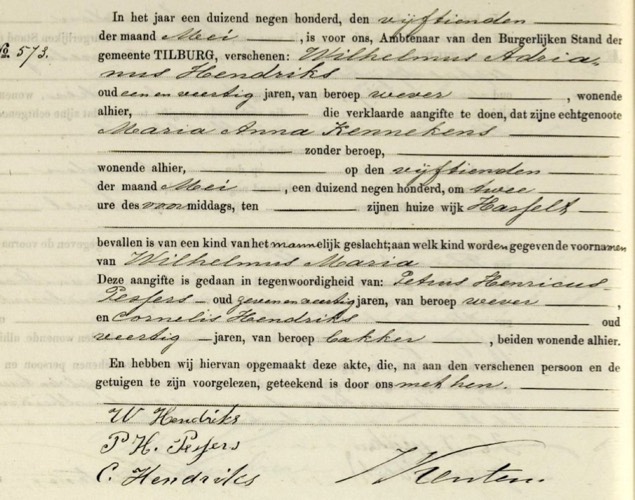 In het jaar een duizend negen honderd, den vijftienden
der maand Mei, is voor ons, Ambtenaar van den Burgerlijken Stand der
No. 573. gemeente TILBURG, verschenen: Wilhelmus Adria-
nus Hendriks
oud een en veertig jaren, van beroep wever, wonende
alhier, die verklaarde aangifte te doen, dat zijne echtgenoote
Maria Anna Kennekens
zonder beroep,
wonende alhier, op den vijftienden
der maand Mei, een duizend negen honderd, om twee
ure des voormiddags, ten zijnen huize wijk Hasselt
bevallen is van een kind van het mannelijk geslacht; aan welk kind worden gegeven de voornamen
van Wilhelmus Maria
Deze aangifte is gedaan in tegenwoordigheid van: Petrus Henricus
Pessers oud zeven en veertig jaren, van beroep wever,
en Cornelis Hendriks oud
veertig jaren, van beroep bakker, beiden wonende alhier.
En hebben wij hiervan opgemaakt deze akte, die, na aan den verschenen persoon en de
getuigen te zijn voorgelezen, geteekend is door ons met hen.
W Hendriks
P. H. Pessers
C. Hendriks